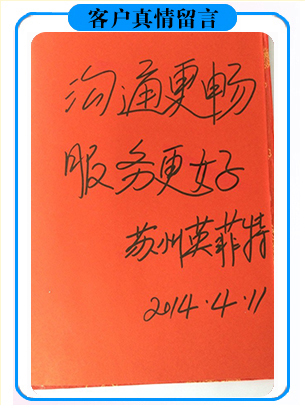 客户真情留言
沟通更畅
服务更好
苏州英菲特
2014.4.11